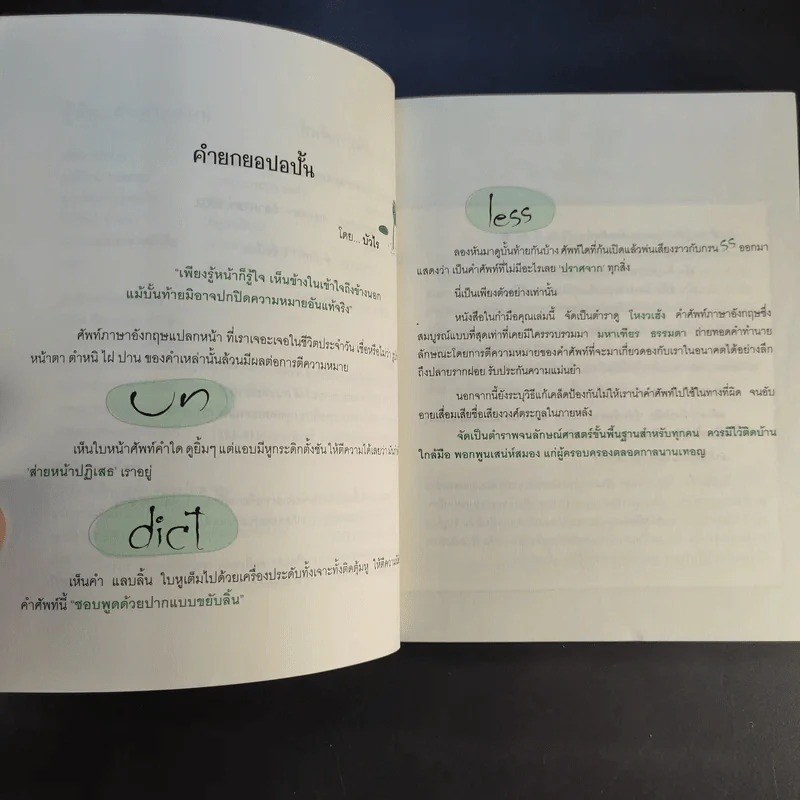 คำยกยอปอปั้น
โดย... บัวไร
"เพียงรู้หน้าก็รู้ใจ เห็นข้างในเข้าใจถึงข้างนอก
แม้บั้นท้ายมิอาจปกปิดความหมายอันแท้จริง"
ศัพท์ภาษาอังกฤษแปลกหน้า ที่เราเจอะเจอในชีวิตประจำวัน เชื่อหรือไม่ว่า
หน้าตา ตำหนิ ไฝ ปาน ของคำเหล่านั้นล้วนมีผลต่อการตีความหมาย
un
เห็นใบหน้าศัพท์คำใด ดูยิ้มๆ แต่แอบมีหูกระดิกตั้งชัน ให้ตีความได้เลยว่า
'ส่ายหน้าปฏิเสธ' เราอยู่
dict
เห็นคำ แลบลิ้น ใบหูเต็มไปด้วยเครื่องประดับทั้งเจาะทั้งติดตุ้มหู ให้ตีความ
คำศัพท์นี้ "ชอบพูดด้วยปากแบบขยับลิ้น"
less
ลองหันมาดูบั้นท้ายกันบ้าง ศัพท์ใดที่ก้นเปิดแล้วพ่นเสียงราวกับกรน ss ออกมา
แสดงว่า เป็นคำศัพท์ที่ไม่มีอะไรเลย 'ปราศจาก' ทุกสิ่ง
นี่เป็นเพียงตัวอย่างเท่านั้น
หนังสือในกำมือคุณเล่มนี้ จัดเป็นตำราดู โหงวเฮ้ง คำศัพท์ภาษาอังกฤษซึ่ง
สมบูรณ์แบบที่สุดเท่าที่เคยมีใครรวบรวมมา มหาเฑียร ธรรมดา ถ่ายทอดคำทำนาย
ลักษณะโดยการตีความหมายของคำศัพท์ที่จะมาเกี่ยวดองกับเราในอนาคตได้อย่างลึก
ถึงปลายรากฝอย รับประกันความแม่นยำ
นอกจากนี้ยังระบุวิธีแก้เคล็ดป้องกันไม่ให้เรานำคำศัพท์ไปใช้ในทางที่ผิด จนอับ
อายเสื่อมเสียชื่อเสียงวงศ์ตระกูลในภายหลัง
จัดเป็นตำราพจนลักษณ์ศาสตร์ขั้นพื้นฐานสำหรับทุกคน ควรมีไว้ติดบ้าน
ใกล้มือ พอกพูนเสน่ห์สมอง แก่ผู้ครอบครองตลอดกาลนานเทอญ